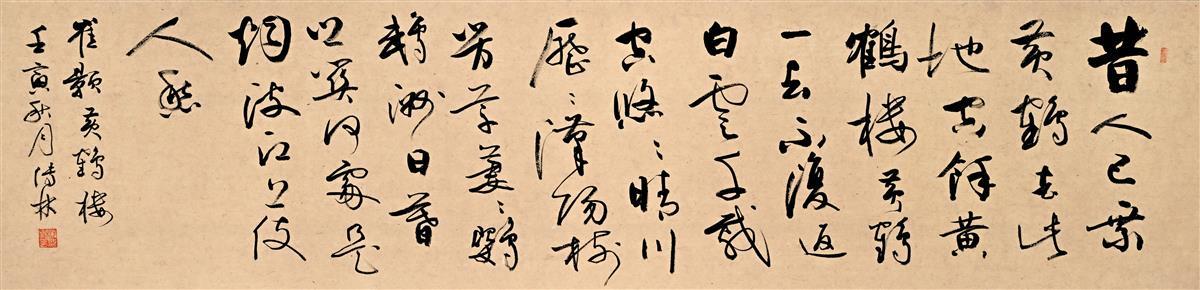 昔人已乘
黄鶴去此
地空餘黄
鶴樓黄鶴
一去不復返
白雲千載
空悠〻晴川
歷〻漢陽樹
芳草萋〻鸚
鵡洲日暮
鄉關何處是
烟波江上使
人愁
崔顥黄鶴樓
壬寅秋月